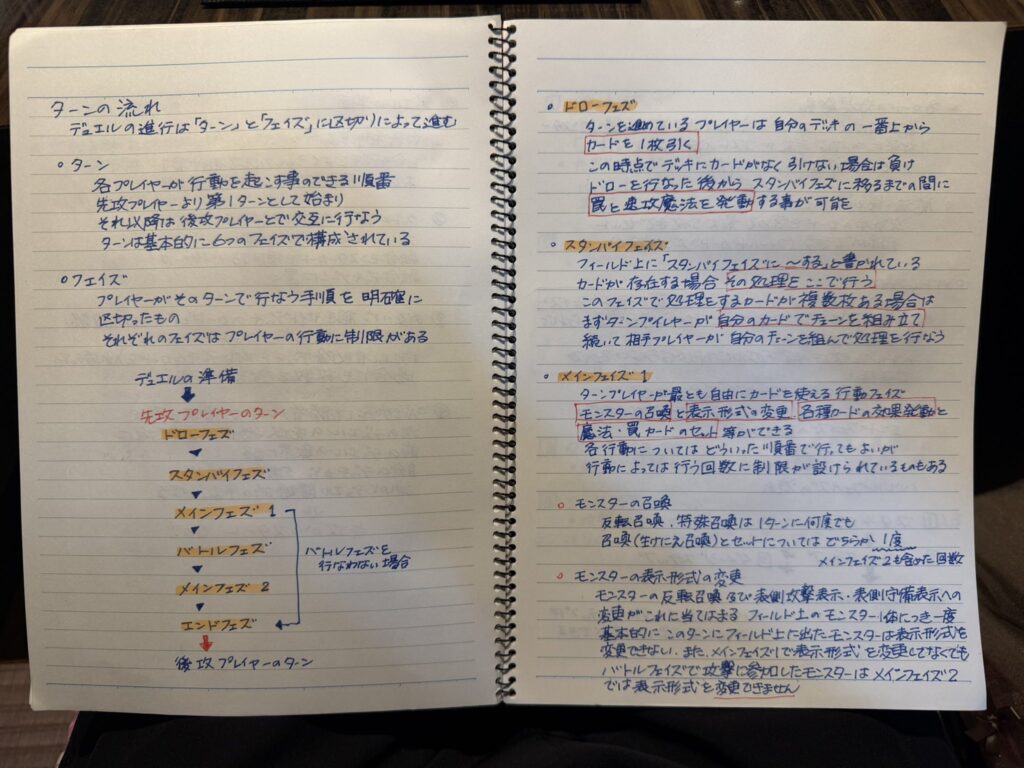 ターンの流れ
デュエルの進行は「ターン」と「フェイズ」に区切りによって進む
ターン
各プレイヤーが行動を起こす事のできる順番
先攻プレイヤーより第1ターンとして始まり
それ以降は後攻プレイヤーとで交互に行なう
ターンは基本的に6つのフェイズで構成されている
フェイズ
プレイヤーがそのターンで行なう手順を明確に
区切ったもの
それぞれのフェイズはプレイヤーの行動に制限がある
デュエルの準備
先攻プレイヤーのターン
ドローフェズ
スタンバイフェズ
メインフェズ 1
バトルフェズ
メインフェズ 2
エンドフェズ
後攻プレイヤーのターン
バトルフェズを
行なわない場合
ドローフェズ
ターンを進めているプレイヤーは自分のデッキの一番上から
カードを1枚引く
この時点でデッキにカードがなく引けない場合は負け
ドローを行なった後から スタンバイフェズに移るまでの間に
罠と速攻魔法を発動する事が可能
スタンバイフェイズ
フィールド上に「スタンバイフェイズに 〜する」と書かれている
カードが存在する場合 その処理をここで行う
このフェイズで処理をするカードが複数枚ある場合は
まずターンプレイヤーが 自分のカードでチェーンを組み立て
続いて相手プレイヤーが自分のチェーンを組んで処理を行なう
メインフェイズ 1
ターンプレイヤーが最とも自由にカードを使える行動フェイズ
モンスターの召喚と表示形式の変更 各種カードの効果発動と
魔法・罠カードのセット 等ができる
各行動についてはどういった順番で行ってもよいが
行動によっては行う回数に制限が設けられているものもある
モンスターの召喚
反転召喚、特殊召喚は1ターンに何度でも
召喚(生けにえ召喚)とセットについてはどちらか1度
メインフェイズ2も含めた回数
モンスターの表示形式の変更
モンスターの反転召喚及び表側攻撃表示・表側守備表示への
変更がこれに当てはまる フィールド上のモンスター1体につき一度
基本的にこのターンにフィールド上に出たモンスターは表示形式を
変更できない。また、メインフェイズ1で表示形式を変更してなくても
バトルフェイズで攻撃に参加したモンスターはメインフェイズ2
では表示形式を変更できません